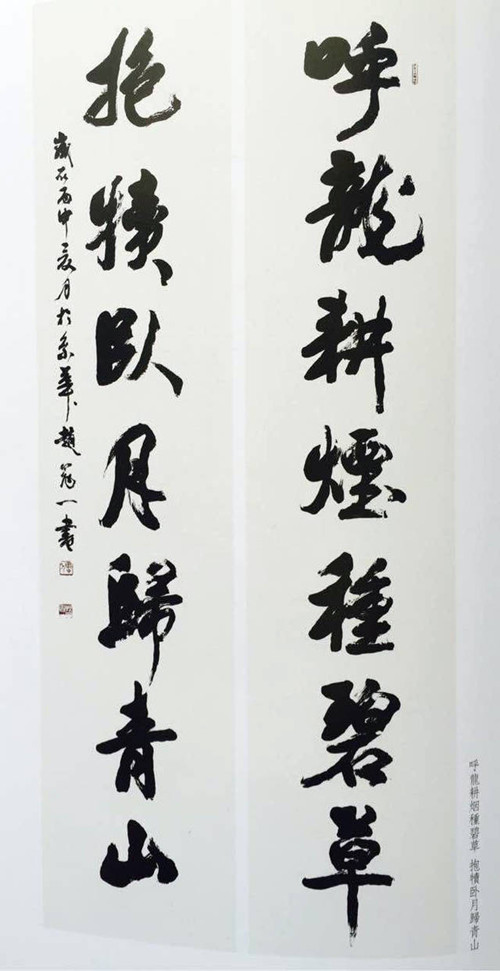 呼龍耕煙種碧草
抱犢臥月歸青山
歲在丙申夏月於京華趙一書
呼龍耕烟種碧草 抱犢卧月歸青山